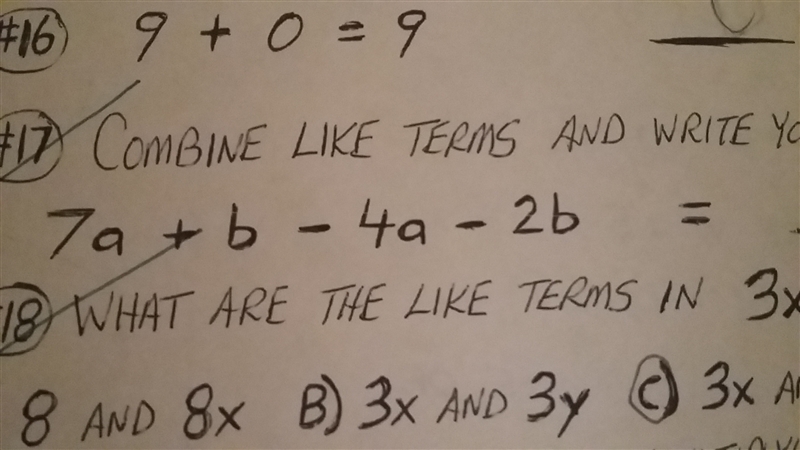 #16 9 + 0 = 9
#17 COMBINE LIKE TERMS AND WRITE
7a + b - 4a - 2b =
18 WHAT ARE THE LIKE TERMS IN 3x
8 AND 8x B) 3x AND 3y C) 3x